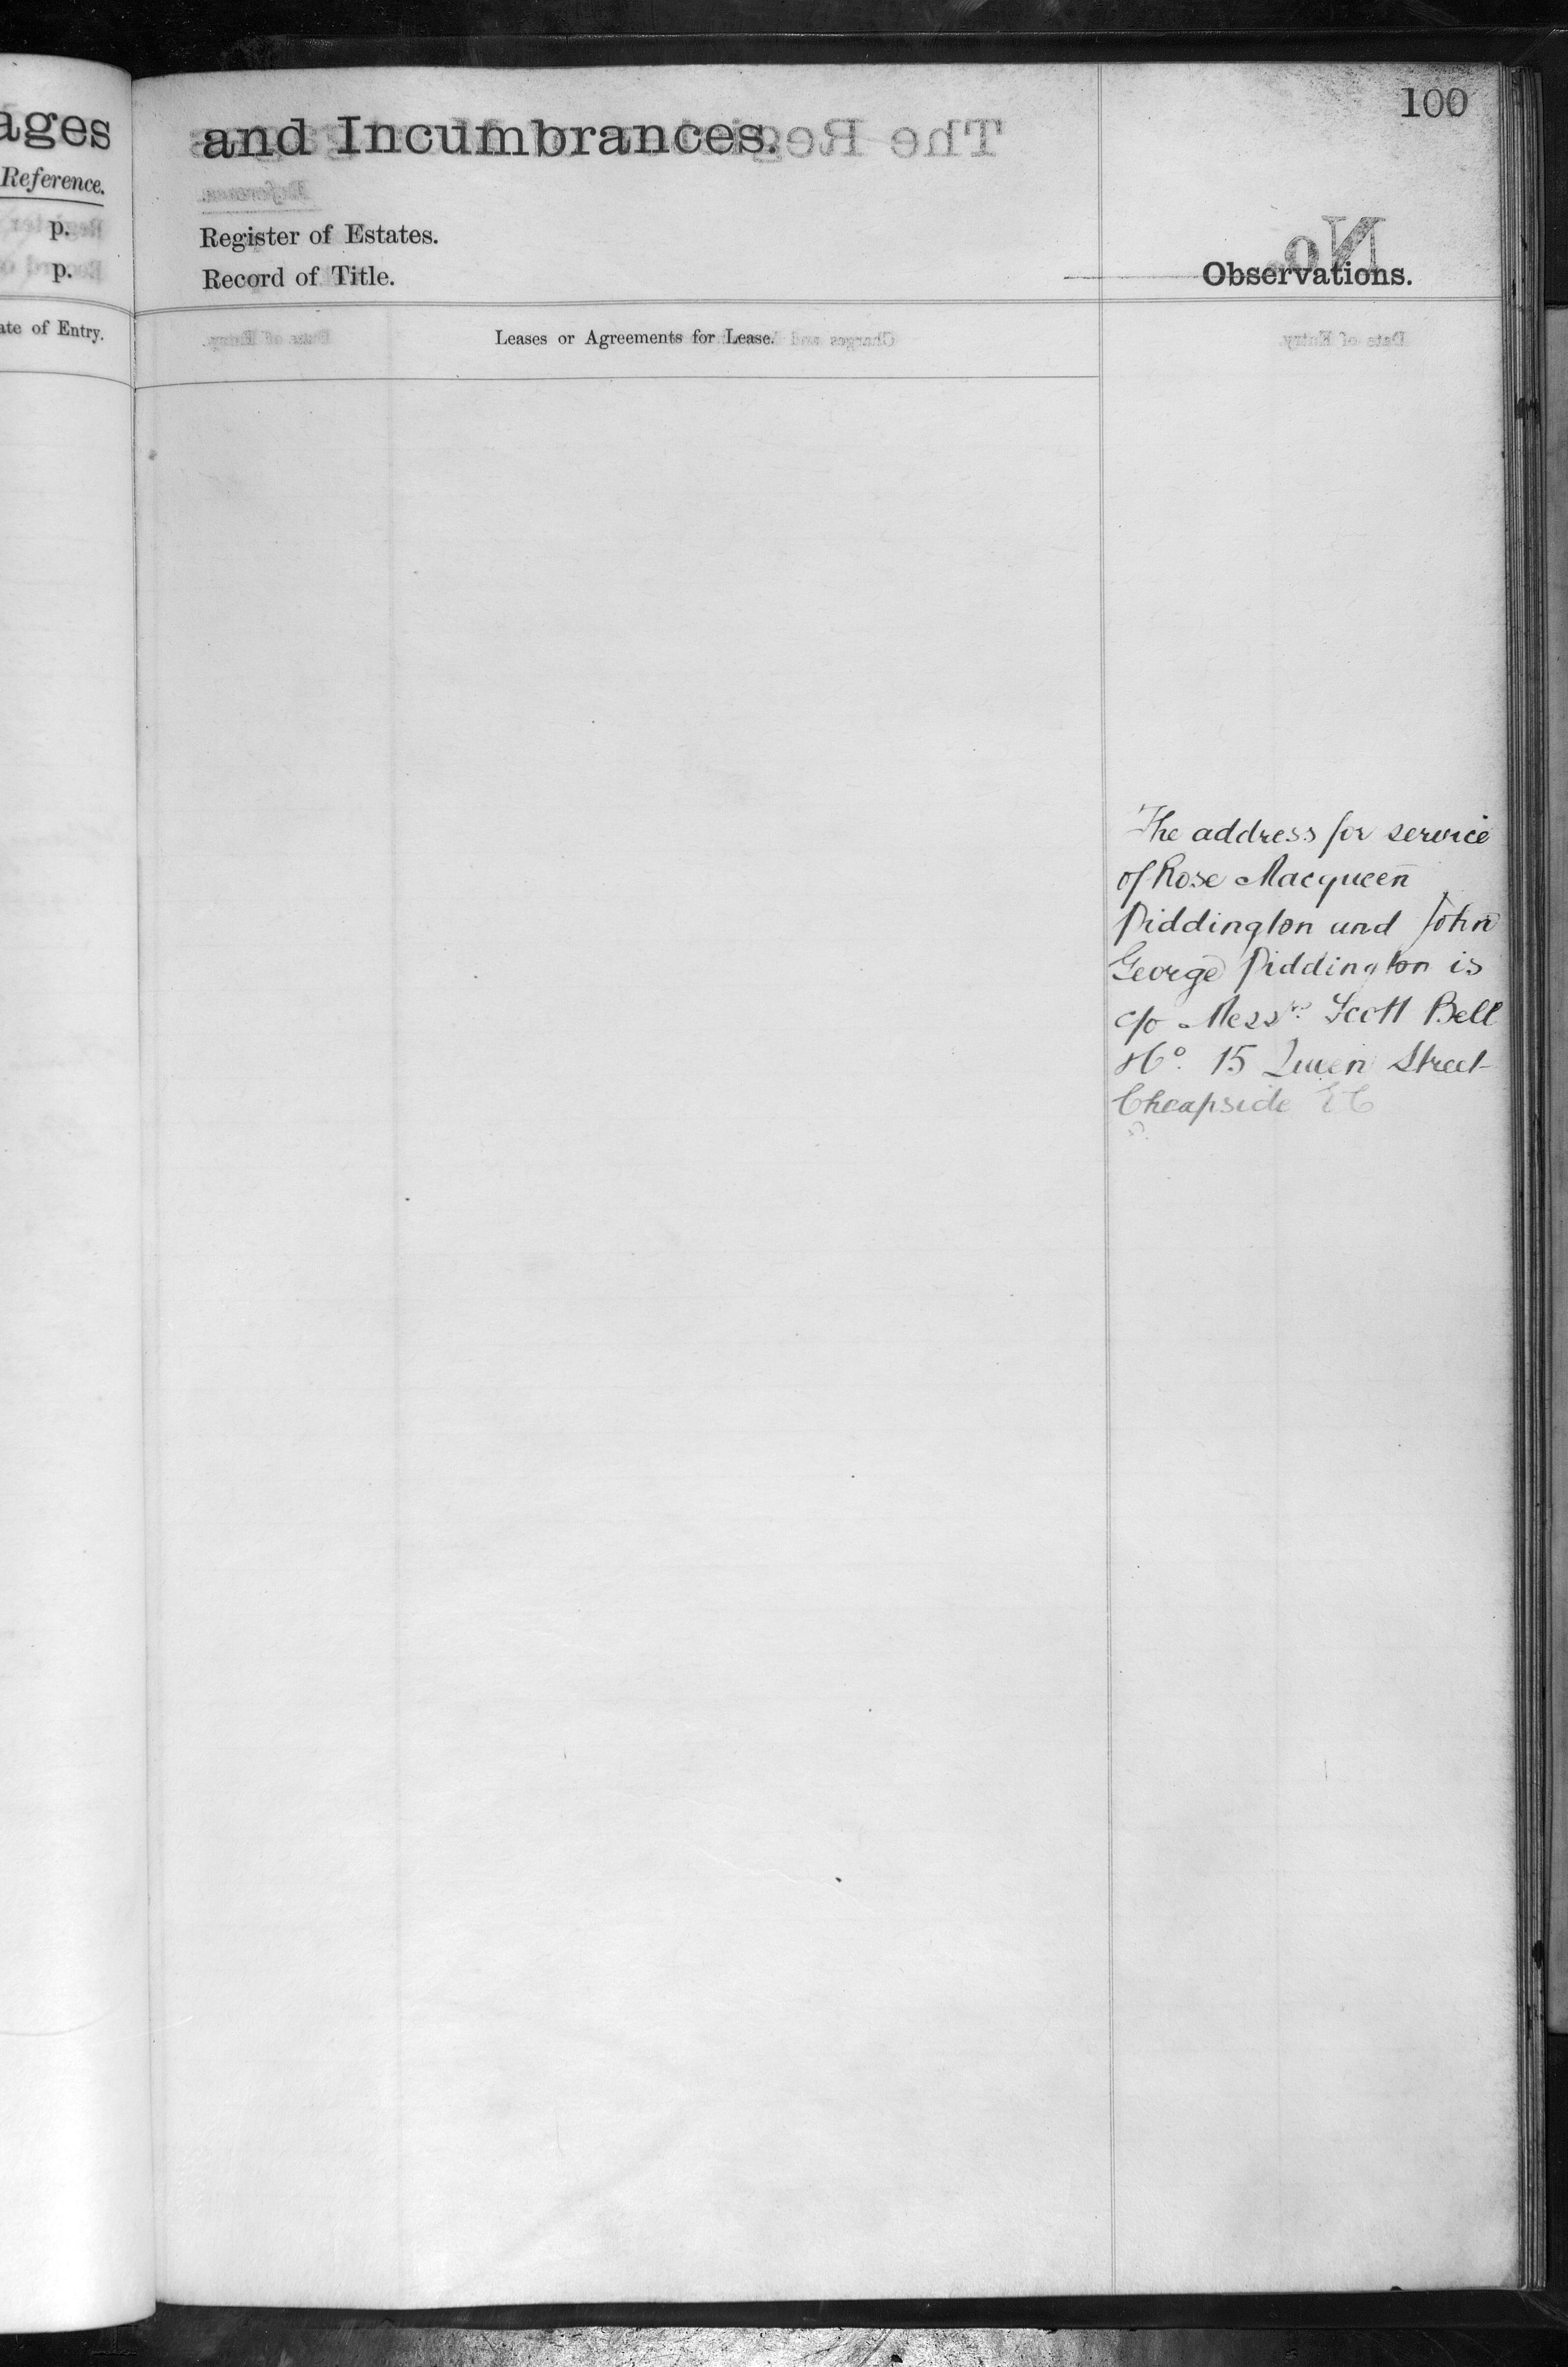 ages
Reference.
p.
p.
ate of Entry.
100
and Incumbrances.
Register of Estates.
Record of Title.
Observations.
Leases or Agreements for Lease.
The address for service
of Rose Macqueen
Piddington and John
George Piddington is
c/o Messrs. Scott Bell
& Co. 15 Queen Street
Cheapside E C